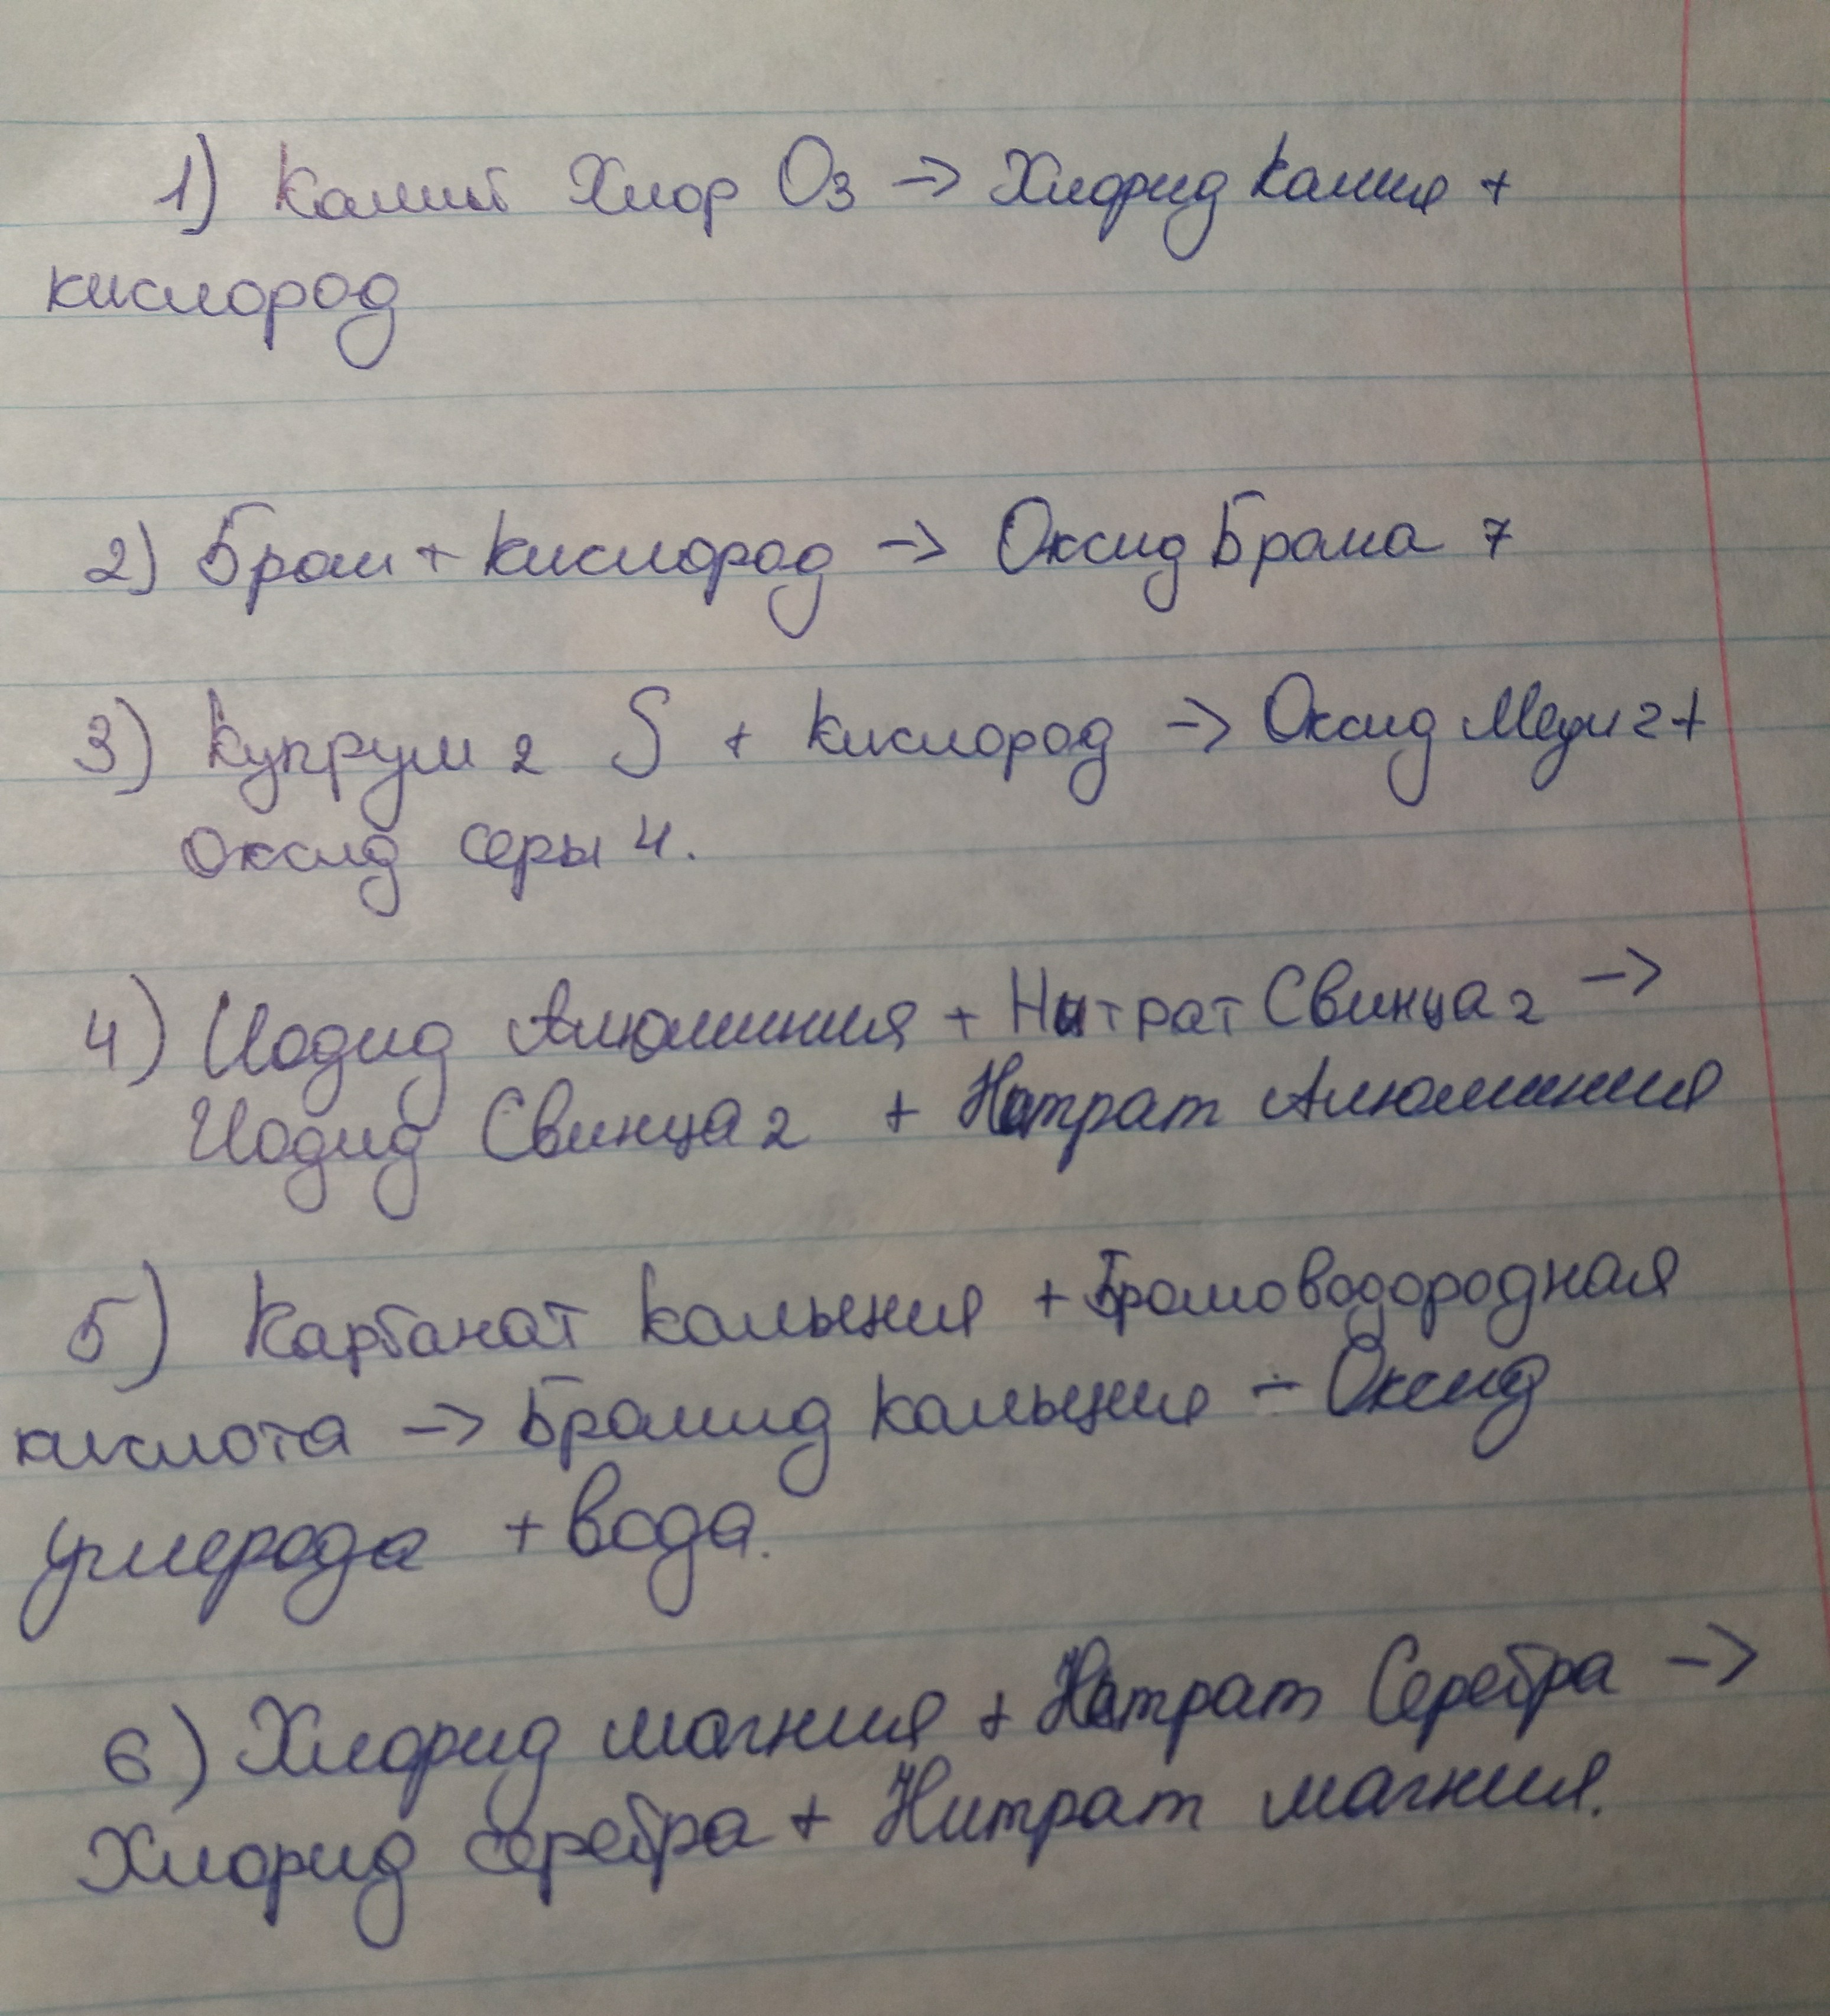 1) Калий Хлор O3 -> Хлорид калия +
кислород
2) Бром + кислород -> Оксид Брома 7
3) Купрум 2 S + кислород -> Оксид Меди 2 +
Оксид серы 4.
4) Иодид Алюминия + Нитрат Свинца 2 ->
Иодид Свинца 2 + Нитрат Алюминия
5) Карбанат кальция + Бромоводородная
кислота -> Бромид кальция + Оксид
углерода + вода.
6) Хлорид магния + Нитрат Серебра ->
Хлорид серебра + Нитрат магния.